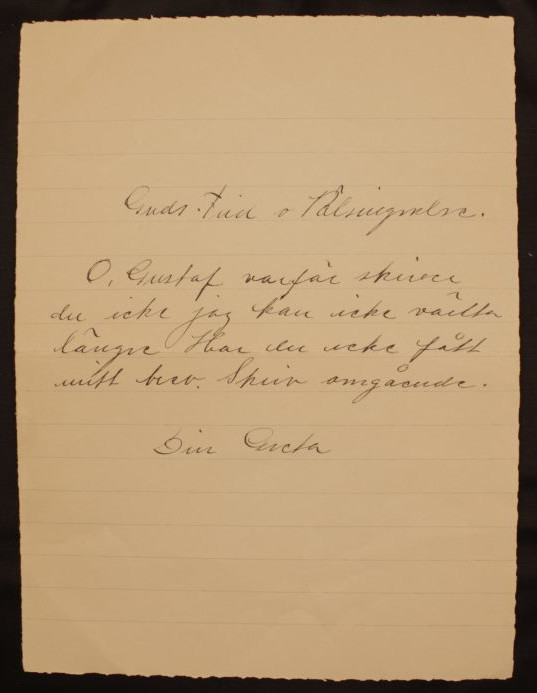 Guds Frid o Välsingnelse.
O, Gustaf varför skriver
du icke jag kan icke vänta
längre Har du icke fått
mitt brev. Skriv omgående.
Din Greta